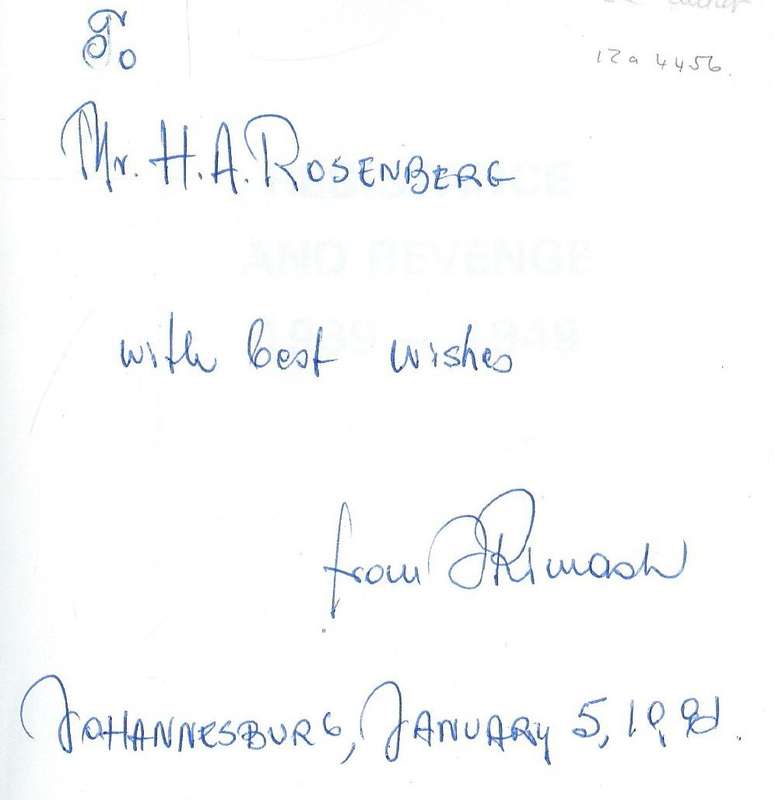 12a 4456.
To
Mr. H. A. ROSENBERG
AND REVENGE
with best wishes
from
JOHANNESBURG, JANUARY 5, 1991.